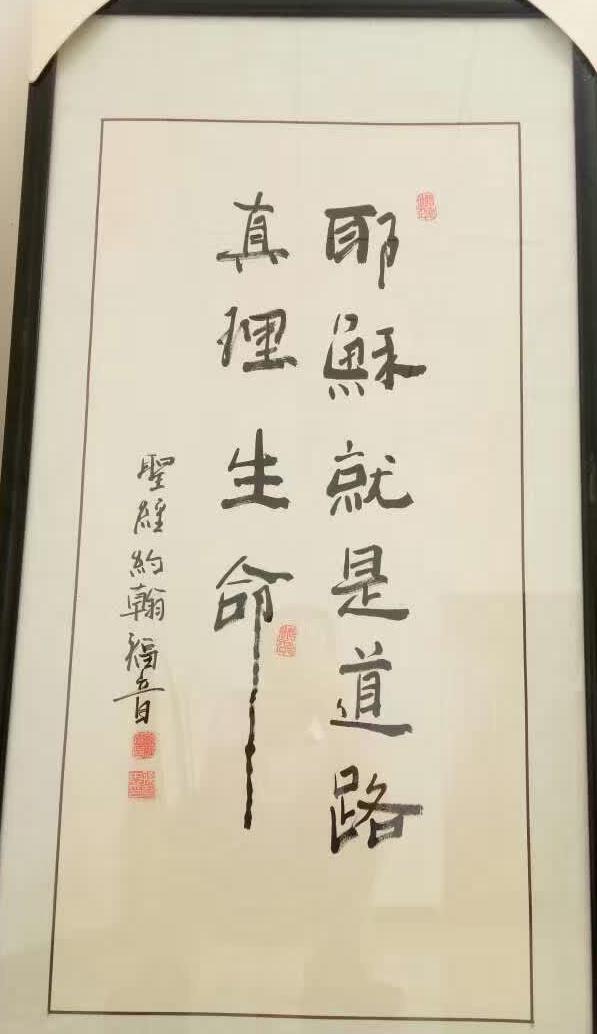 耶穌就是道路
真理生命
聖經約翰福音